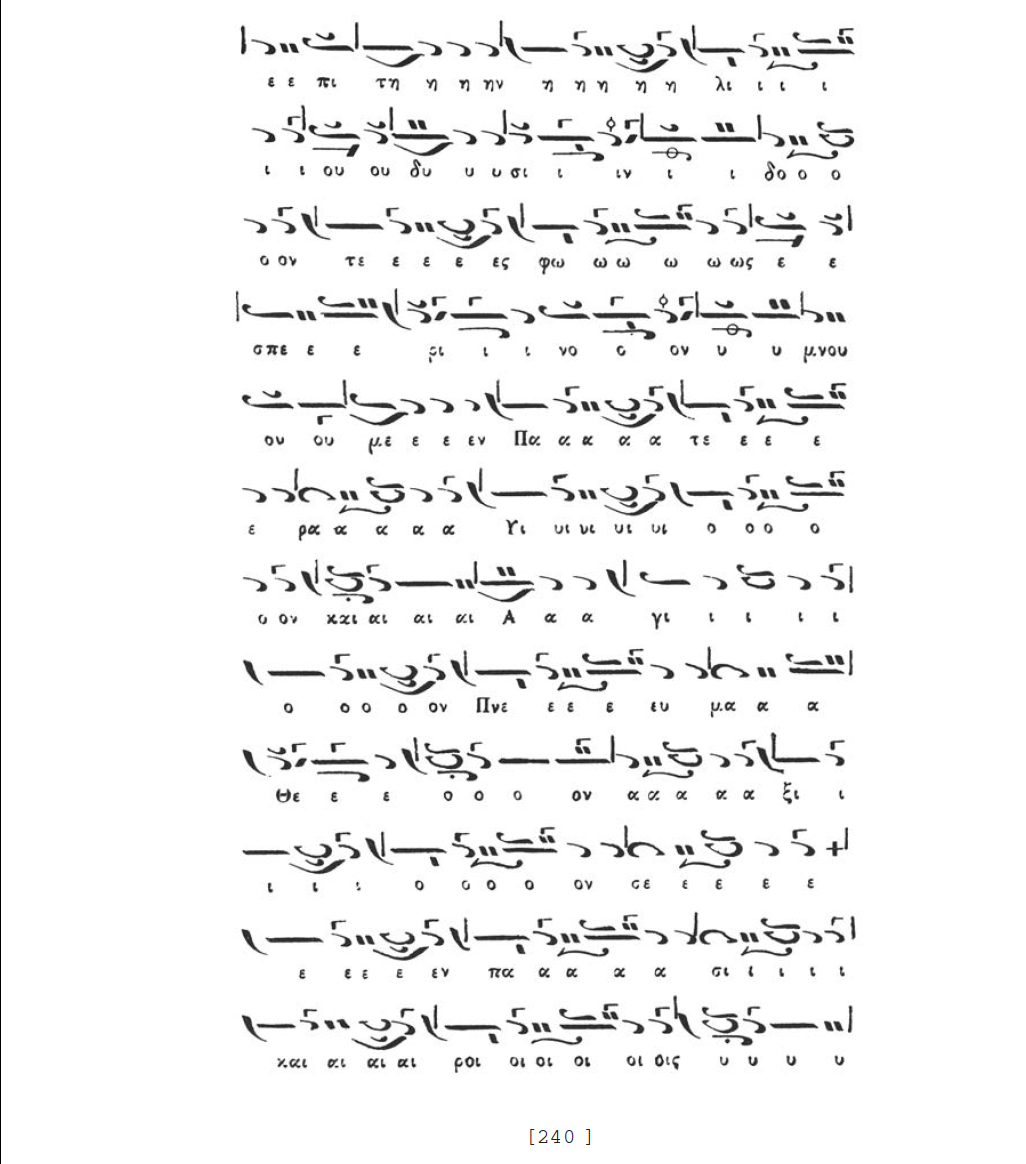 ε ε πι τη η η ην η η η η η λι ι ι ι
ι ι ου ου δυ υ υ σι ι ιν ι ι δο ο ο
ο ον τε ε ε ε ες φω ω ω ω ω ως ε ε
σπε ε ε ρι ι ι νο ο ον υ υ μνου
ου ου με ε ε εν Πα α α α α τε ε ε ε
ε ρα α α α α Υι υι υι υι υι ο ο ο ο
ο ον και αι αι αι Α α α γι ι ι ι ι
ο ο ο ο ον Πνε ε ε ε ευ μα α α
Θε ε ε ο ο ο ον α α α α α ξι ι
ι ι ι ο ο ο ο ον σε ε ε ε ε
ε ε ε ε εν πα α α α α σι ι ι ι ι
και αι αι αι ροι οι οι οι οι οις υ υ υ υ
[240 ]